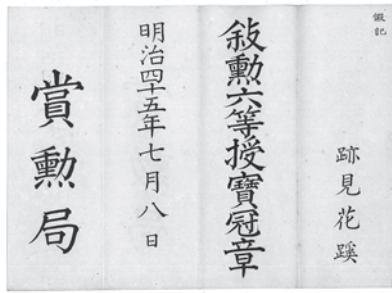 假記
跡見花蹊
敍勳六等授寶冠章
明治四十五年七月八日
賞勳局